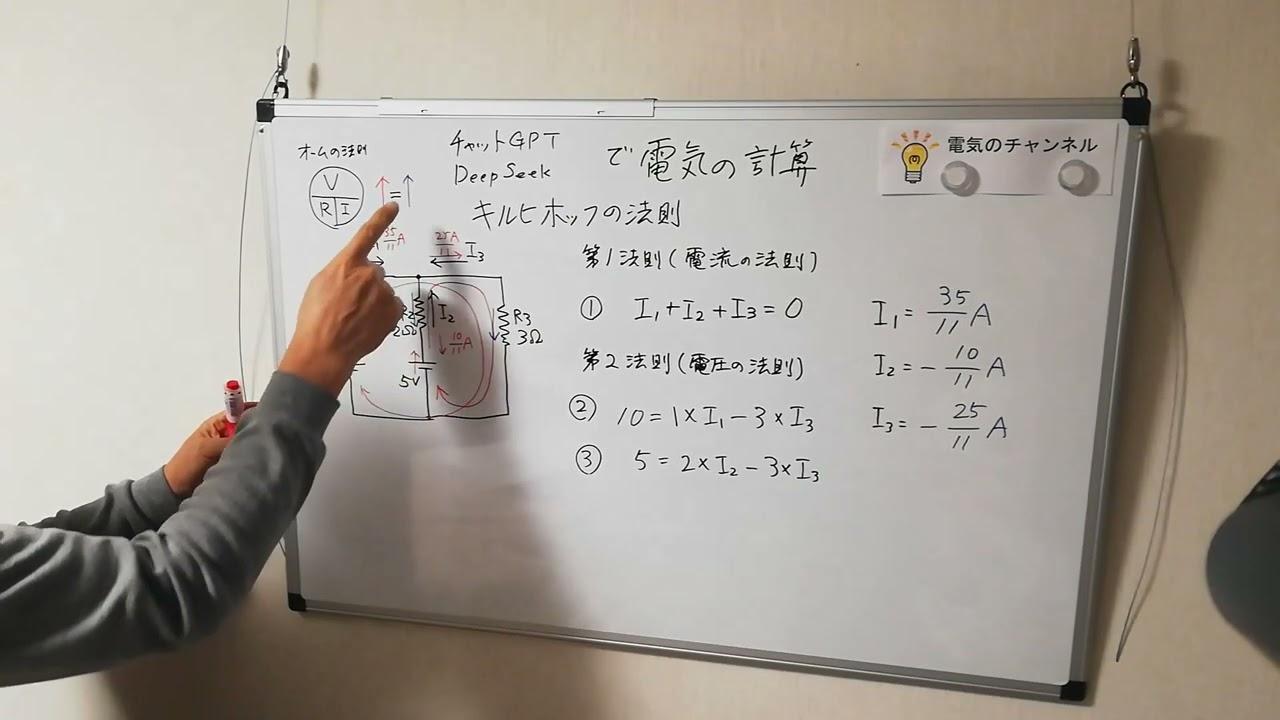 オームの法則
V
R I
チャットGPT
DeepSeek
で電気の計算
電気のチャンネル
キルヒホッフの法則
=
35/11 A
25A/11
I3
R2
2Ω
I2
10/11 A
5V
R3
3Ω
第1法則(電流の法則)
① I1+I2+I3=0
第2法則(電圧の法則)
② 10=1×I1-3×I3
③ 5=2×I2-3×I3
I1= 35/11 A
I2=- 10/11 A
I3=- 25/11 A